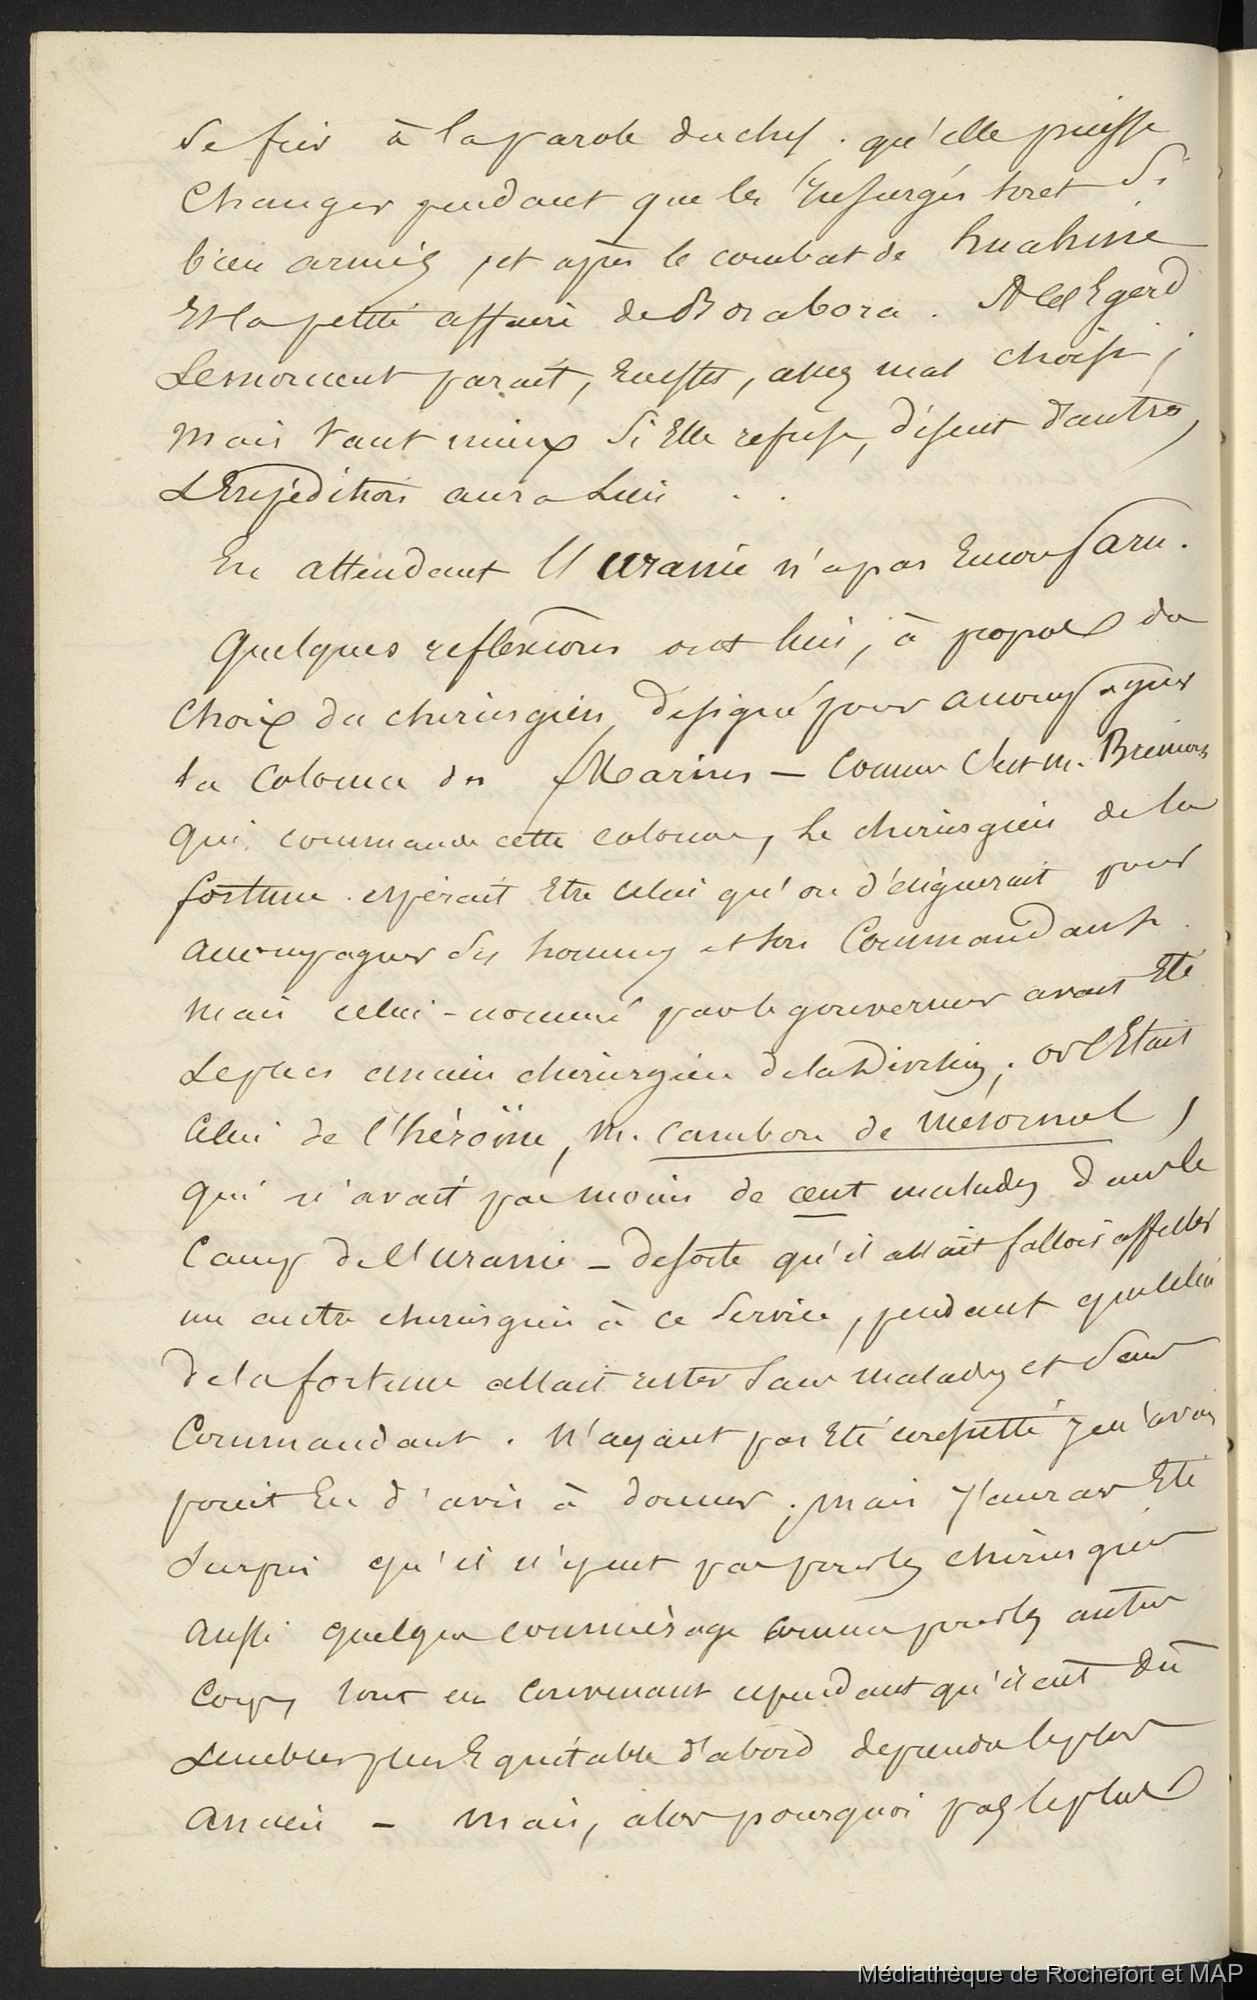 Se fier à la parole du chef. qu'elle puisse
Changer pendant que les Insurgés sont si
bien armés, et après le combat de huahine
Et la petite affaire de Borabora. A cet Egard
Le moment parait, Ensuite, assez mal choisi;
mais tant mieux Si Elle refuse, disent d'autres,
L'Expédition aura lieu . .
En attendant l'uranie n'a pas Encore paru.
Quelques reflexions ont lieu, à propos du
Choix du chirurgien désigné pour accompagner
la Colonne des Marins — Comme C'est m. Bremens
qui commande cette colonne, Le chirurgien de la
fortune esperait Etre celui qu'on désignerait pour
accompagner ses hommes et son Commandant.
mais celui-nommé par le gouverneur avait Eté
Le plus ancien chirurgien de la Division; or C'Etait
Celui de l'héroïne, M. Cambon de mésormel,
qui n'avait pas moins de cent malades dans le
Camp de l'uranie – de sorte qu'il allait falloir affecter
un autre chirurgien à ce Service, pendant que celui
de la fortune allait rester Sans malades et Sans
Commandant. N'ayant pas Eté consulté je n'avais
point Eu d'avis à donner; mais j'aurais Eté
Surpris qu'il n'y eut pas pour les chirurgiens
aussi quelque commérage comme pour les autres
Corps, tout en Convenant cependant qu'il eut dû
Sembler plus Equitable d'abord de prendre le plus
ancien – mais, alors pourquoi pas le plus